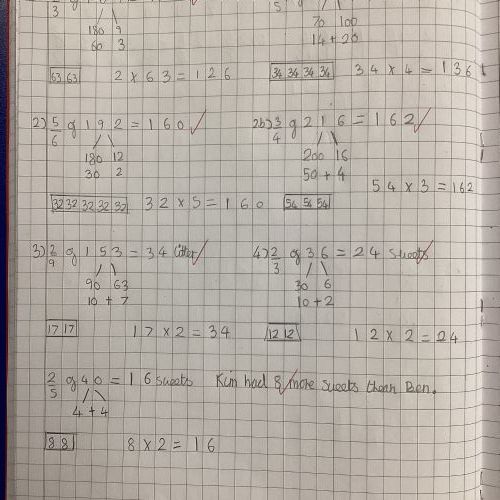 3
180 9
60 3
63 63 2 x 63 = 126
5
70 100
14 + 20
34 34 34 34 34 x 4 = 136
2) 5/6 of 192 = 160
180 12
30 2
32 32 32 32 32 32 x 5 = 160
2b) 3/4 of 216 = 162
200 16
50 + 4
54 x 3 = 162
54 54 54
3) 2/9 of 153 = 34
90 63
10 + 7
17 17 17 x 2 = 34
4) 2/3 of 36 = 24 sweets
30 6
10 + 2
12 12 12 x 2 = 24
2/5 of 40 = 16 sweets Kim had 8 more sweets than Ben.
4 + 4
8 8 8 x 2 = 16